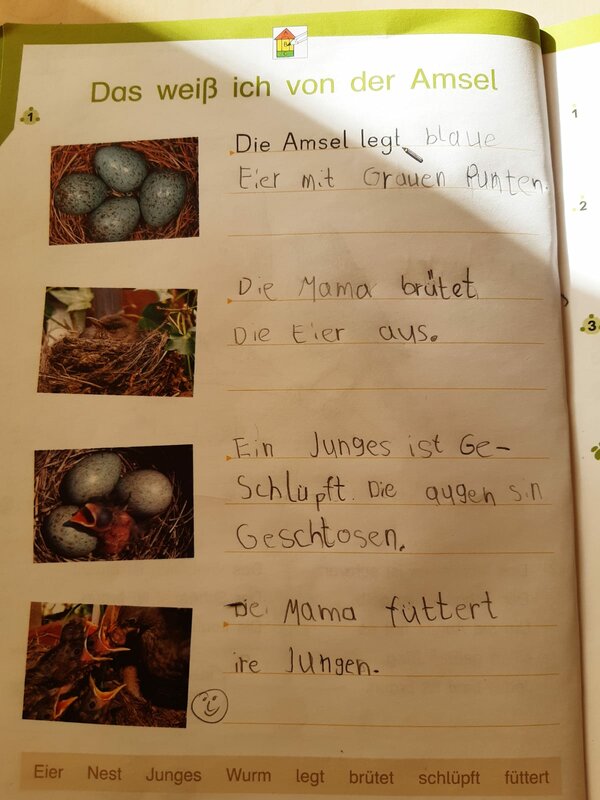 Das weiß ich von der Amsel
1
Die Amsel legt blaue
Eier mit Grauen Punten.
Die Mama brütet
Die Eier aus.
Ein Junges ist Ge-
Schlüpft. Die augen sin
Geschtosen.
Die Mama füttert
ire Jungen.
Eier Nest Junges Wurm legt brütet schlüpft füttert
1
2
3